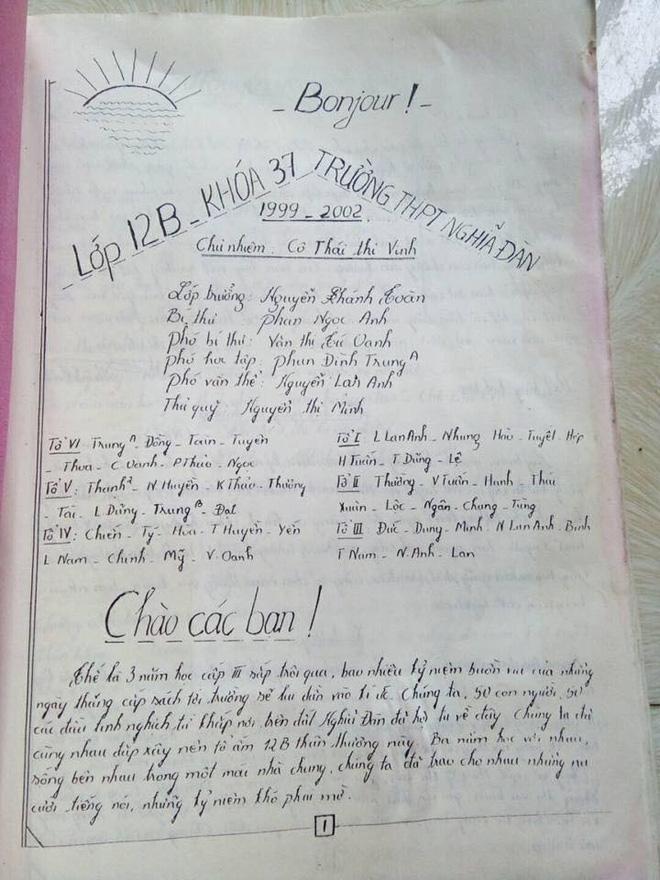 - Bonjour! -
Lớp 12B - KHÓA 37 TRƯỜNG THPT NGHĨA ĐÀN
1999 - 2002
Chủ nhiệm. Cô Thái thị Vinh
Lớp trưởng: Nguyễn Khánh Toàn
Bí thư phan Ngọc Anh
Phó bí thư: Văn thị Tú Oanh
phó học tập: phan Đình Trung A
Phó văn thể: Nguyễn Lan Anh
Thủ quỹ. Nguyễn thị Minh
Tổ VI Trung A - Đồng - Tám - Tuyên
- Thoa - C Oanh - P Thảo - Ngọc
Tổ V: Thanh - N Huyền - K Thảo - Thường
- Tài - L Dũng - Trung B - Đạt
Tổ IV: Chiến - Tý - Hoa - T Huyền - Yến
L Nam - Chinh - Mỹ - V. Oanh
Tổ I L Lan Anh - Nhung Hảo - Tuyết - Hợp
H Tuấn - T Dũng - Lệ
Tổ II Thương - V Tuấn - Hạnh - Thái
Xuân - Lộc - Ngân - Chung - Tùng
Tổ III Đức - Dung - Minh - N Lan Anh - Bình
T Nam - N. Anh - Lan
Chào các bạn!
Thế là 3 năm học cấp III sắp trôi qua, bao nhiêu kỷ niệm buồn vui của những
ngày tháng cắp sách tới trường sẽ lùi dần vào kí ức. Chúng ta, 50 con người, 50
các đầu tinh nghịch từ khắp nơi bên đất Nghĩa Đàn đã hội tụ về đây. Chúng ta đã
cùng nhau đắp xây nên tổ ấm 12B thân thương này. Ba năm học với nhau,
sống bên nhau trong một mái nhà chung, chúng ta đã trao cho nhau những nụ
cười tiếng nói, những kỷ niệm khó phai mờ.
1